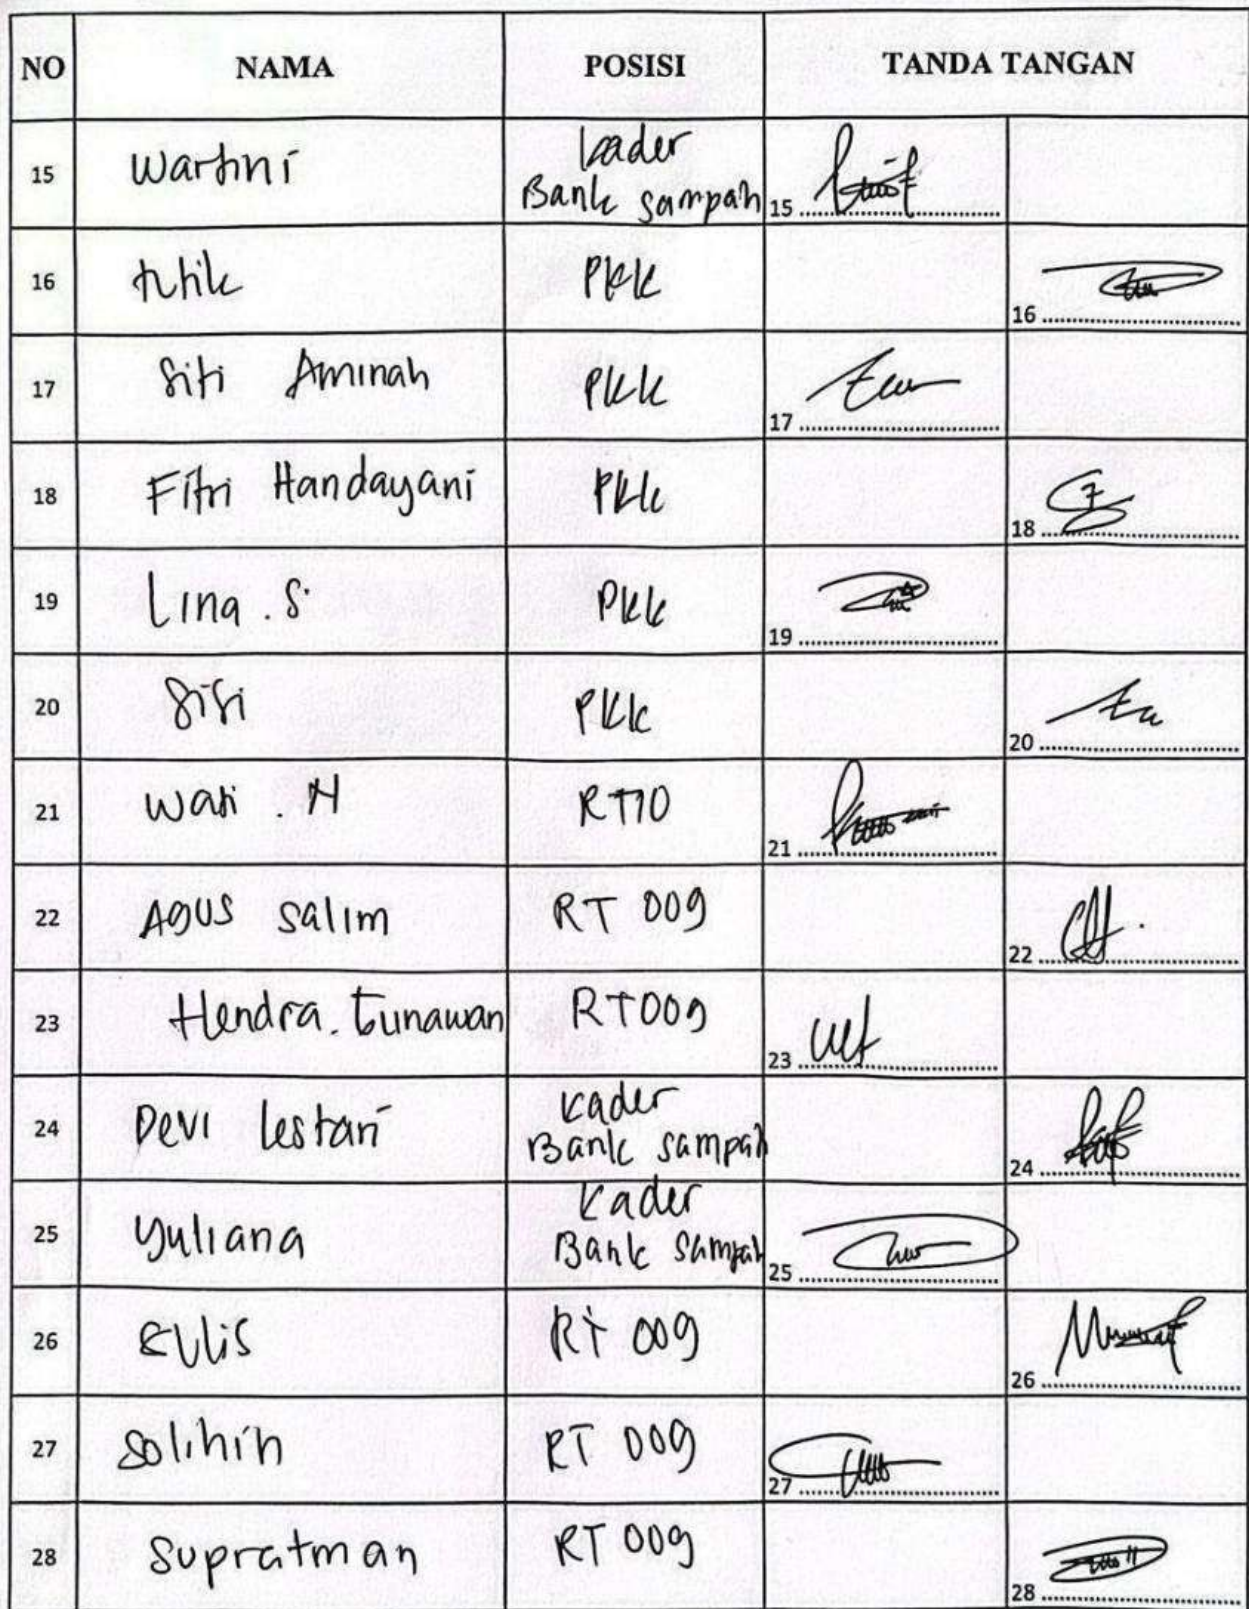 NO NAMA POSISI TANDA TANGAN
15 Wartini Kader
Bank sampah 15
16 titik PKK 16
17 Siti Aminah PKK 17
18 Fitri Handayani PKK 18
19 Lina . S PKK 19
20 PKK 20
21 Wati . N RT10 21
22 Agus Salim RT 009 22
23 Hendra. Gunawan RT009 23
24 Devi Lestari Kader
Bank sampah 24
25 Yuliana Kader
Bank sampah 25
26 RT 009 26
27 Solihin RT 009 27
28 Supratman RT 009 28